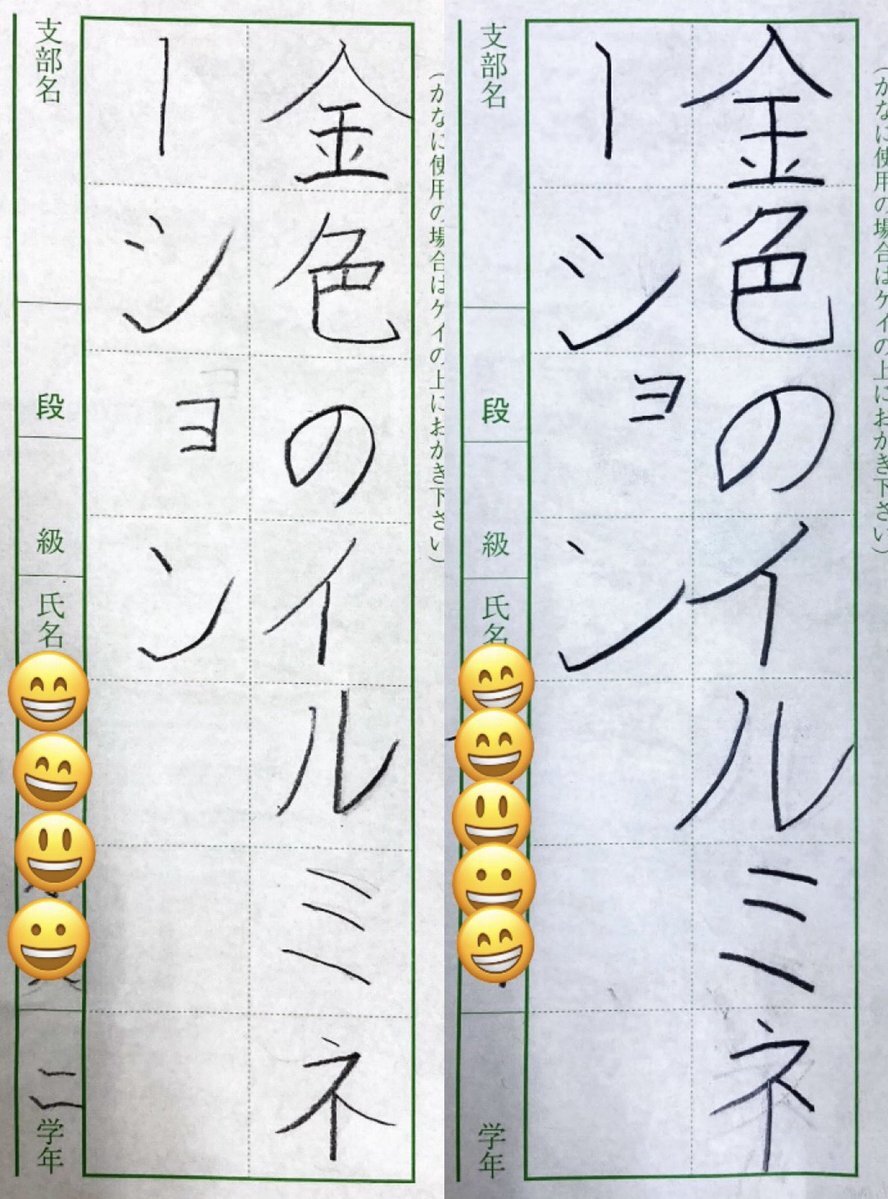 (かなに使用の場合はケイの上におかき下さい)
金色のイルミネ
ーション
支部名
段
級
氏名
二学年
(かなに使用の場合はケイの上におかき下さい)
金色のイルミネ
ーション
支部名
段
級
氏名
学年